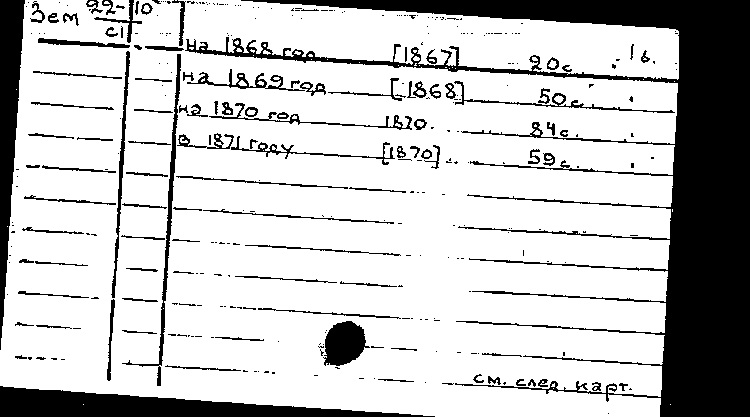 Зем 22-10
с1
на 1868 год [1867] 20с. 1б.
на 1869 год [1868] 50с.
на 1870 год 1870. 84с.
в 1871 году [1870] 59с.
см. след. карт.